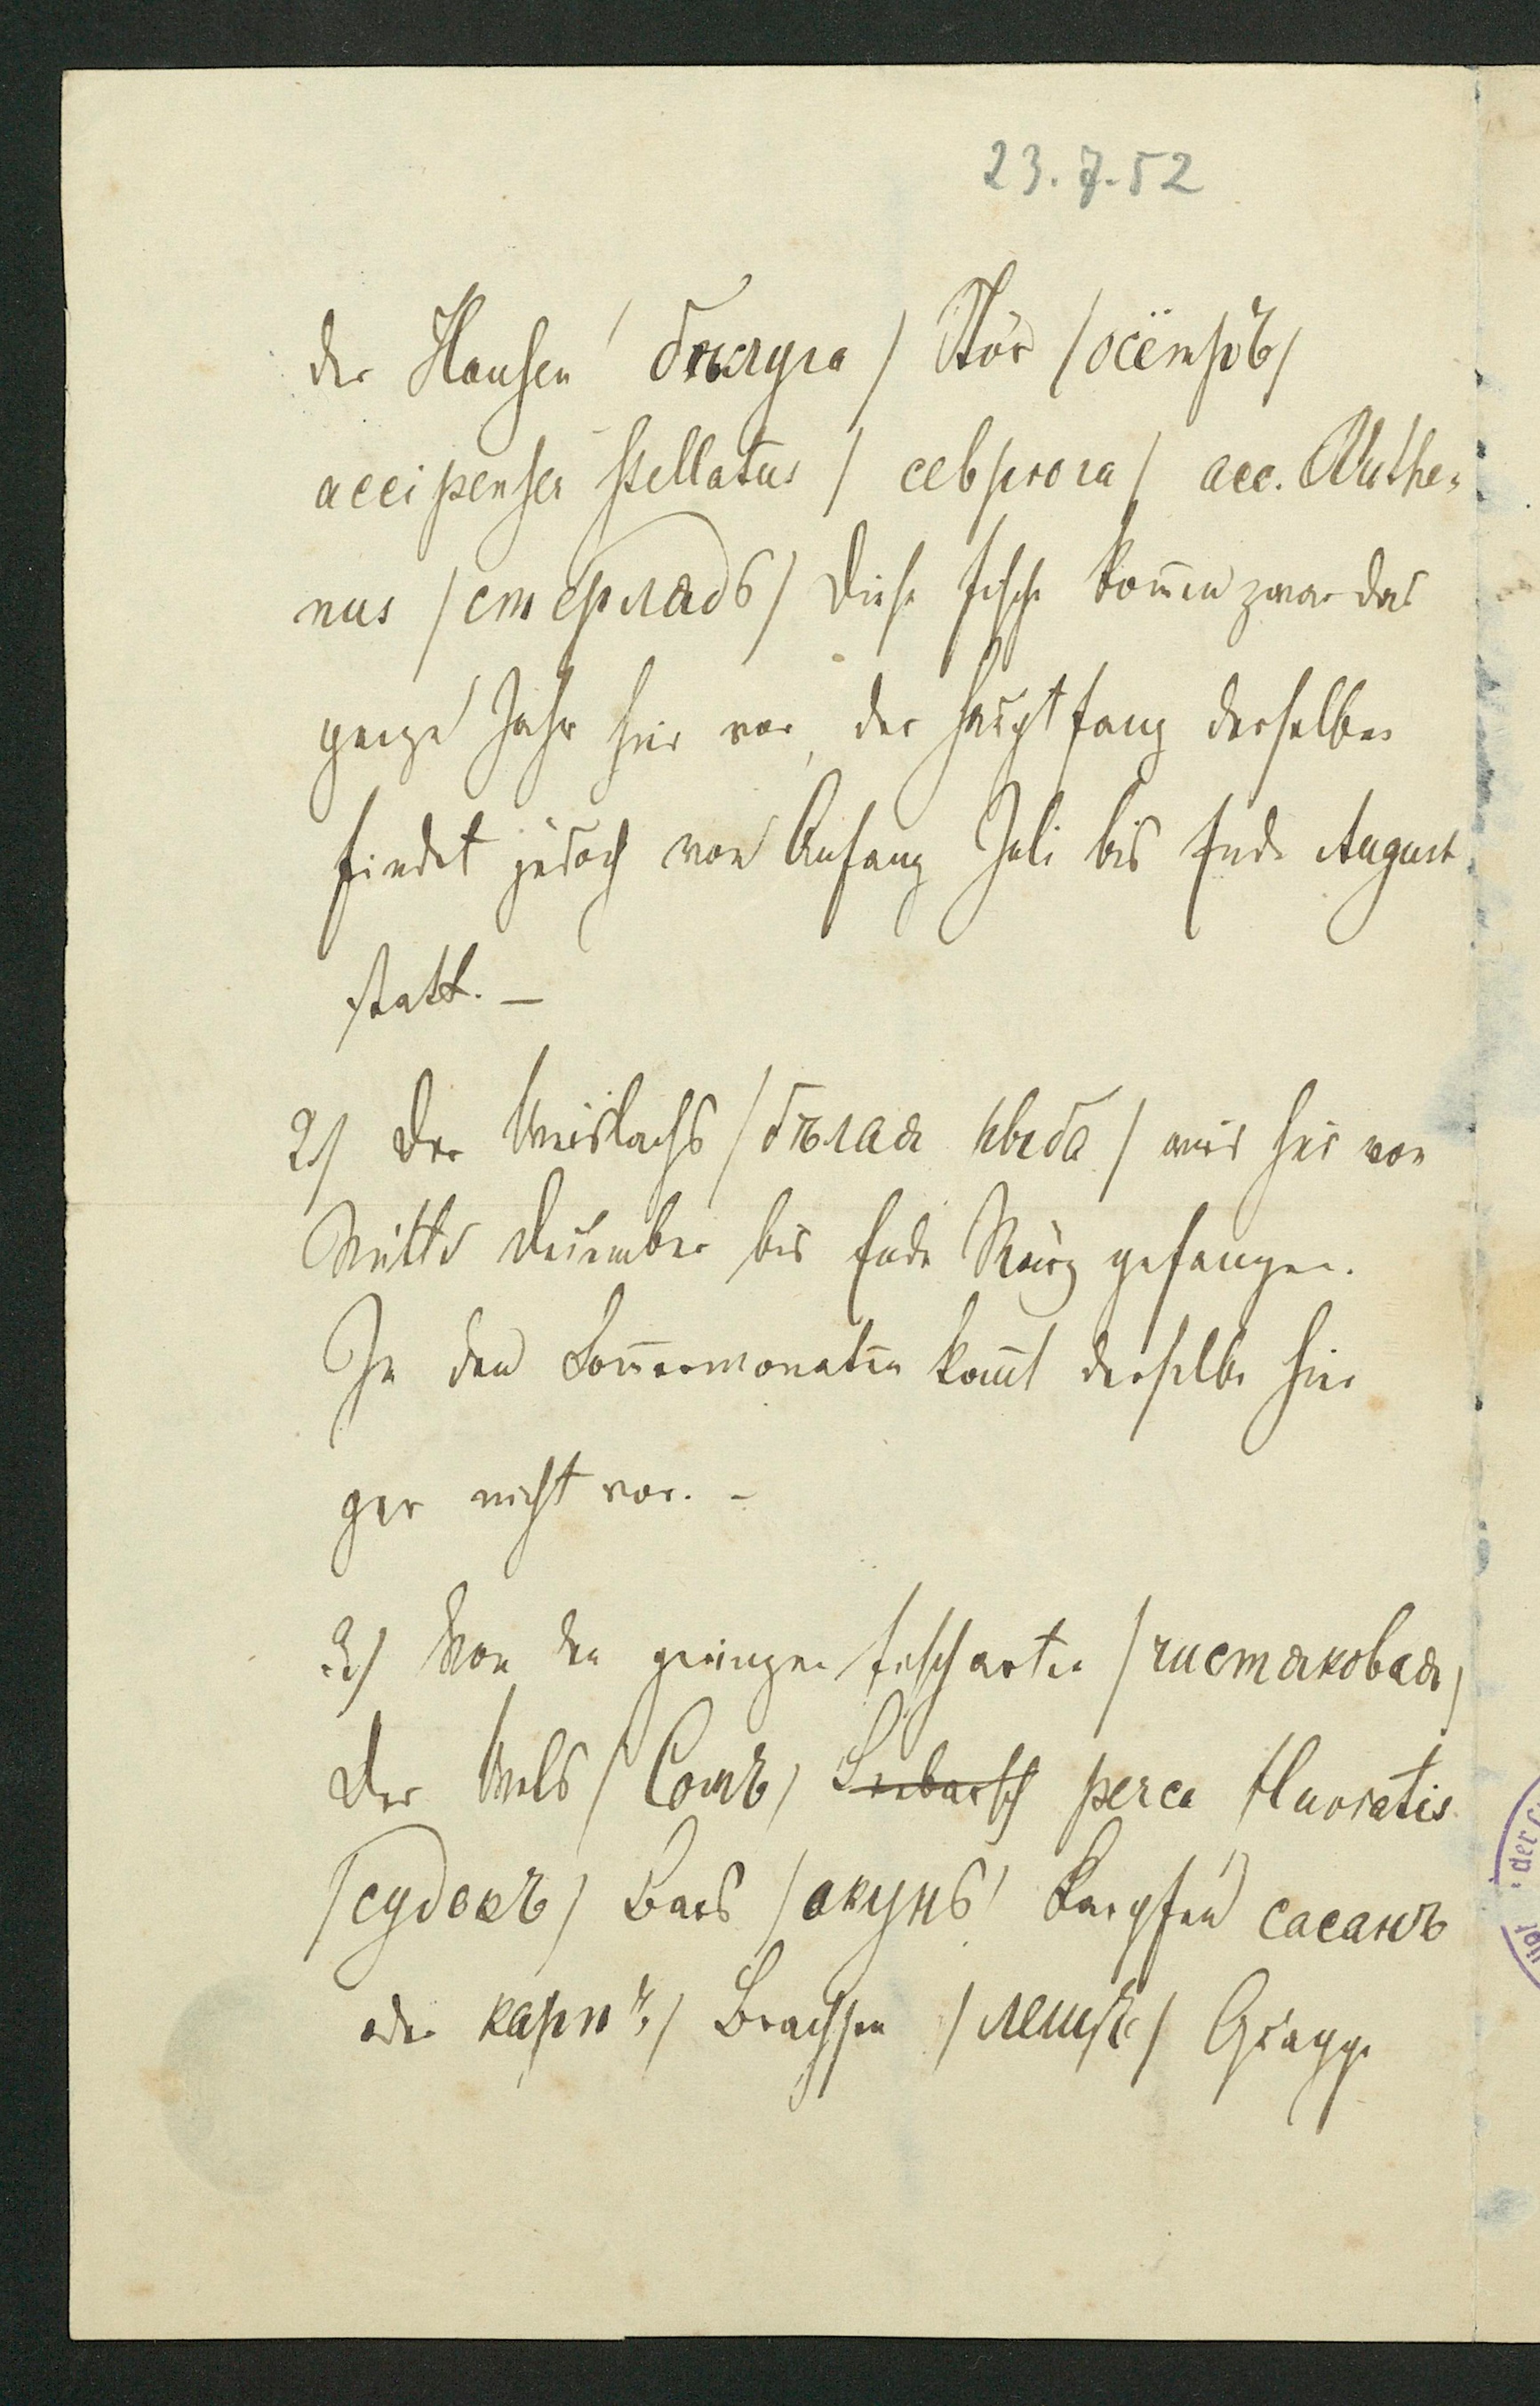 23.7.52
der Hausen / бѣлуга / Stör / осётръ /
accipenser stellatus / севрюга / acc. Ruthe=
nus / стерладь / Diese Fische kom̅en zwar das
ganze Jahr hier vor, der Hauptfang derselben
findet jedoch von Anfang Juli bis Ende August
statt. –
2/ Der Weislachs / бѣлая рыба / wird hier von
Mitte Dezember bis Ende März gefangen.
In den Som̅ermonaten kom̅t derselbe hier
gar nicht vor. –
3/ Von den geringen Fischarten / частиковая /
der Wels / Сомъ / Seebarsch perca fluviatis
/ судокъ / Bars / окунь / Karpfen сасанъ
oder карпъ / Brachsen / лещъ /
der